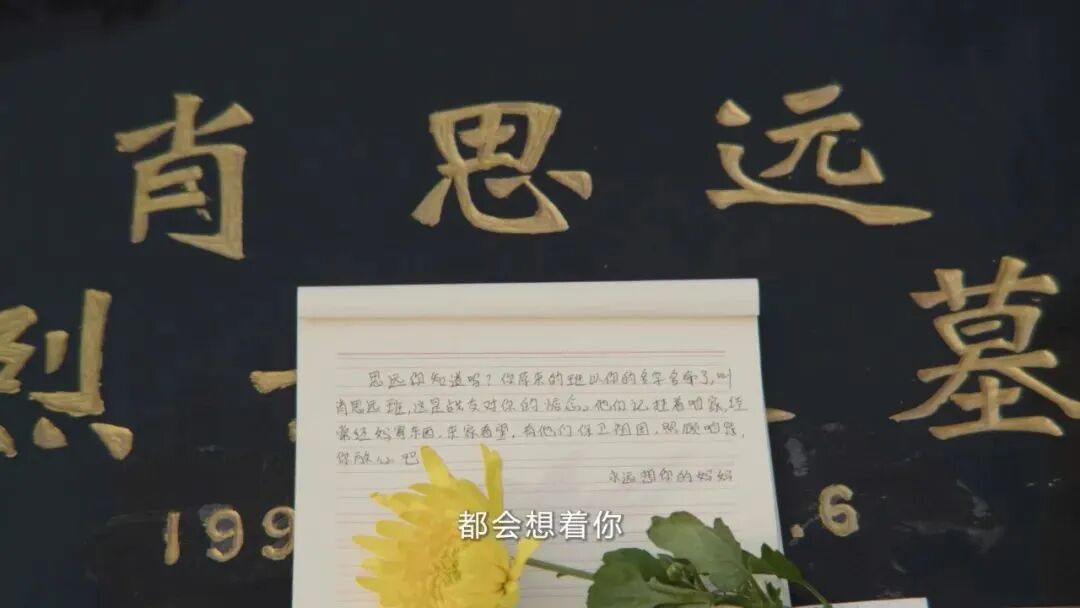 肖思远
烈 墓
思远你知道吗?你原来的班以你的名字命名了,叫
肖思远班,这是战友对你的怀念。他们记挂着咱家,经
常给妈寄东西,来家看望,有他们保卫祖国,照顾咱家,
你放心吧
永远想你的妈妈
199 .6
都会想着你